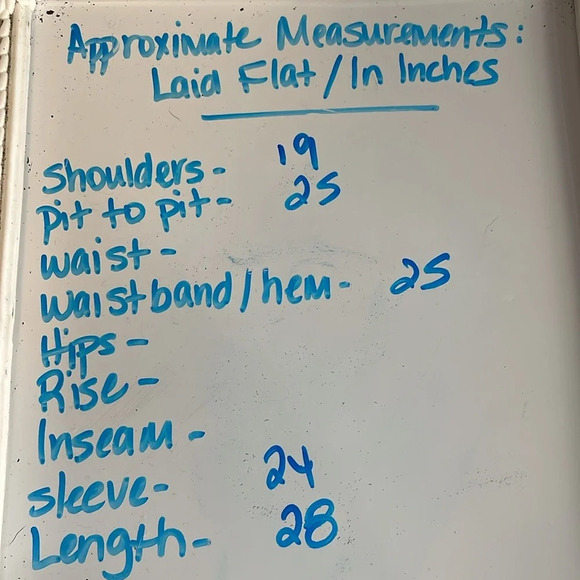 Approximate Measurements:
Laid Flat / In Inches
Shoulders- 19
pit to pit- 25
waist-
waistband/hem- 25
Hips-
Rise-
Inseam-
sleeve- 24
Length- 28